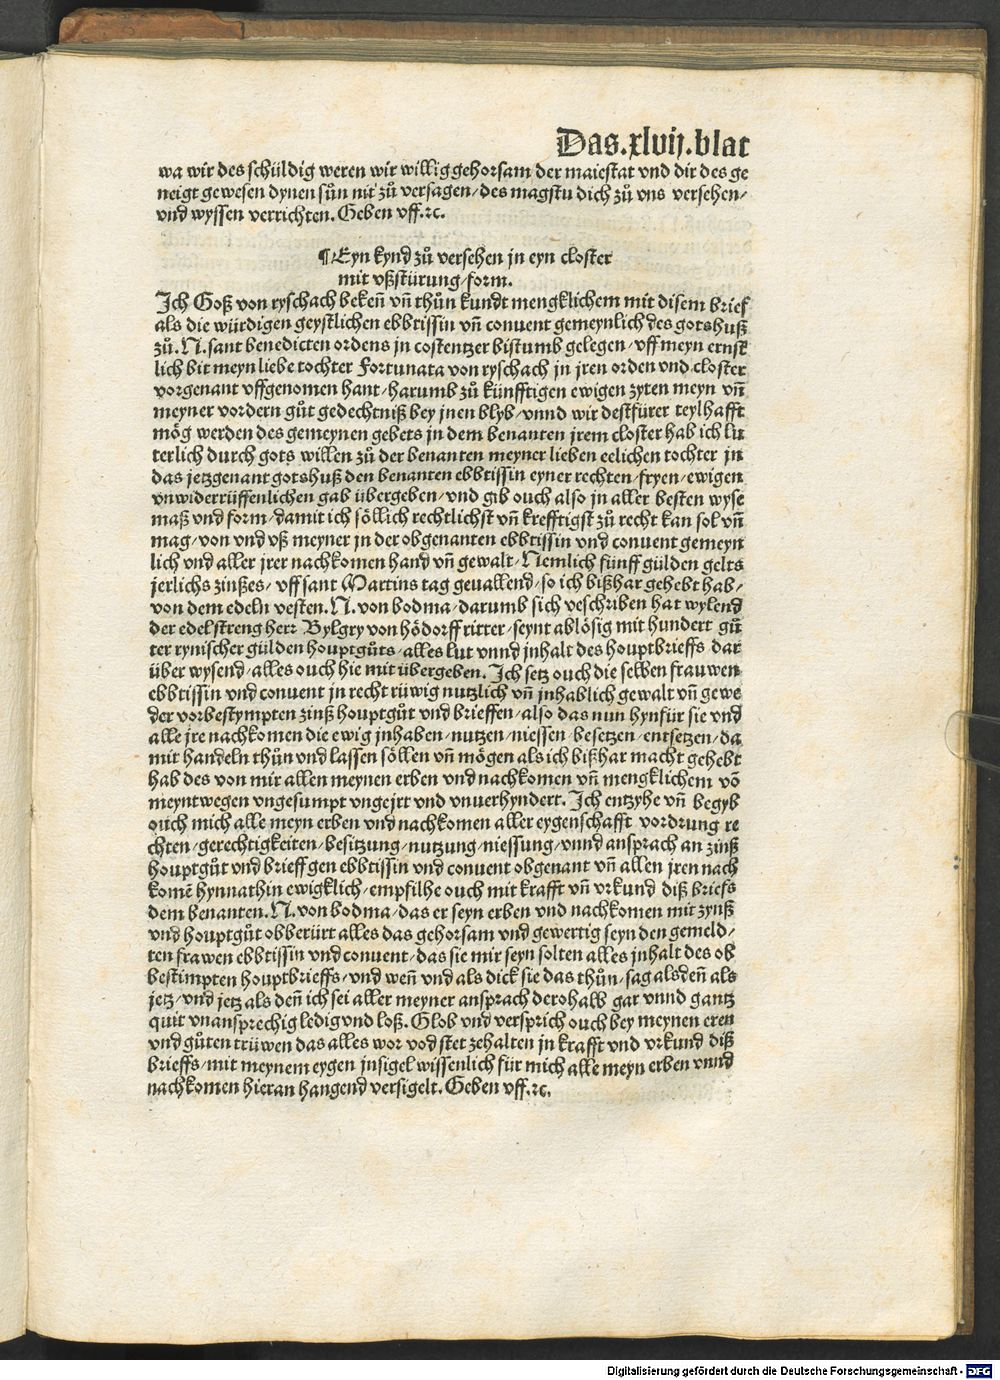 Das.xlvij.blat
wa wir des schüldig weren wir willig gehorsam der maiestat vnd dir des ge
neigt gewesen dynen sůn nit zů versagen/des magstu dich zů vns versehen/
vnd wyssen verrichten. Geben vff.ꝛc.
¶Eyn kynd zů versehen jn eyn closter
mit vßstürung/form.
Ich Goß von ryschach bekeñ vñ thůn kundt mengklichem mit disem brief
als die würdigen geystlichen ebbtissin vñ conuent gemeynlich des gotshuß
zů.N.sant benedicten ordens jn costentzer bistumb gelegen/vff meyn ernst
lich bit meyn liebe tochter Fortunata von ryschach jn jren orden vnd closter
vorgenant vffgenomen hant/harumb zů künfftigen ewigen zyten meyn vñ
meyner vordern gůt gedechtniß bey jnen blyb/vnnd wir destfürer teylhafft
mög werden des gemeynen gebets jn dem benanten jrem closter hab ich lu
terlich durch gots willen zů der benanten meyner lieben eelichen tochter jn
das jetzgenant gotshuß den benanten ebbtissin eyner rechten/fryen/ewigen
vnwiderrüffenlichen gab übergeben/vnd gib ouch also jn aller besten wyse
maß vnd form/damit ich söllich rechtlichst vñ krefftigst zů recht kan sol vñ
mag/von vnd vß meyner jn der obgenanten ebbtissin vnd conuent gemeyn
lich vnd aller jrer nachkomen hand vñ gewalt/Nemlich fünff gülden gelts
jerlichs zinßes/vff sant Martins tag geuallend/so ich bißhar gehebt hab/
von dem edeln vesten.N.von bodma/darumb sich veschriben hat wylend
der edel streng herr Bylgry von hödorff ritter/seynt ablösig mit hundert gů
ter rynischer gülden houptgůts/alles lut vnnd jnhalt des houptbrieffs dar
über wysend/alles ouch hie mit übergeben. Ich setz ouch die selben frauwen
ebbtissin vnd conuent jn recht rüwig nutzlich vñ jnhablich gewalt vñ gewe
der vorbestympten zinß houptgůt vnd brieffen/also das nun hynfür sie vnd
alle jre nachkomen die ewig jnhaben/nutzen/niessen/besetzen/entsetzen/da
mit handeln thůn vnd lassen söllen vñ mögen als ich bißhar macht gehebt
hab des von mir allen meynen erben vnd nachkomen vñ mengklichem võ
meyntwegen vngesumpt vngejrt vnd vnuerhyndert. Ich entzyhe vñ begyb
ouch mich alle meyn erben vnd nachkomen aller eygenschafft vordrung re
chten/gerechtigkeiten/besitzung/nutzung/niessung/vnnd ansprach an zinß
houptgůt vnd brieff gen ebbtissin vnd conuent obgenant vñ allen jren nach
komē hynnathin ewigklich/empfilhe ouch mit krafft vñ vrkund diß briefs
dem benanten.N.von bodma/das er seyn erben vnd nachkomen mit zynß
vnd houptgůt obberürt alles das gehorsam vnd gewertig seyn den gemeld/
ten frawen ebbtissin vnd conuent/das sie mir seyn solten alles jnhalt des ob
bestimpten houptbrieffs/vnd weñ vnd als dick sie das thůn/sag alsdeñ als
jetz/vnd jetz als deñ ich sei aller meyner ansprach derohalb gar vnnd gantz
quit vnansprechig ledig vnd loß. Glob vnd versprich ouch bey meynen eren
vnd gůten trüwen das alles wor vod stet zehalten jn krafft vnd vrkund diß
brieffs/mit meynem eygen jnsigel wissenlich für mich alle meyn erben vnnd
nachkomen hieran hangend versigelt. Geben vff.ꝛc.
Digitalisierung gefördert durch die Deutsche Forschungsgemeinschaft - DFG